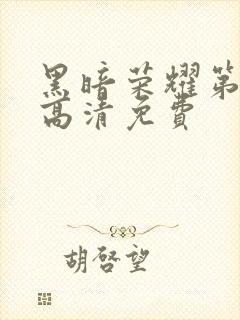 黑暗荣耀第
高清免费
胡啓望